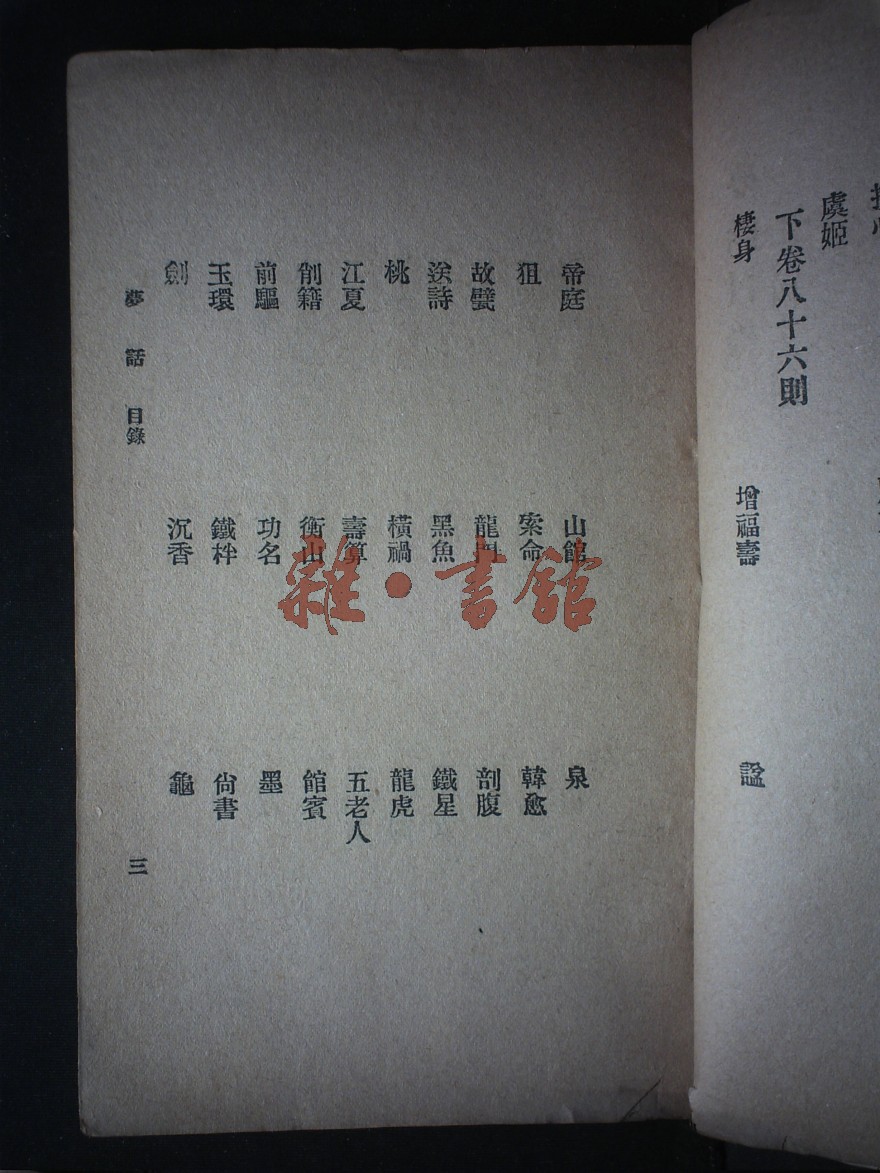 虞姬
下卷八十六則
棲身 增福壽 諡
帝庭 山館 泉
狙 索命 韓愈
故璧 龍 剖腹
送詩 黑魚 鐵星
桃 橫禍 龍虎
江夏 壽算 五老人
削籍 衡山 館賓
前驅 功名 墨
玉環 鐵枠 尙書
劍 沉香 龜
夢話 目錄 三
雜·書館